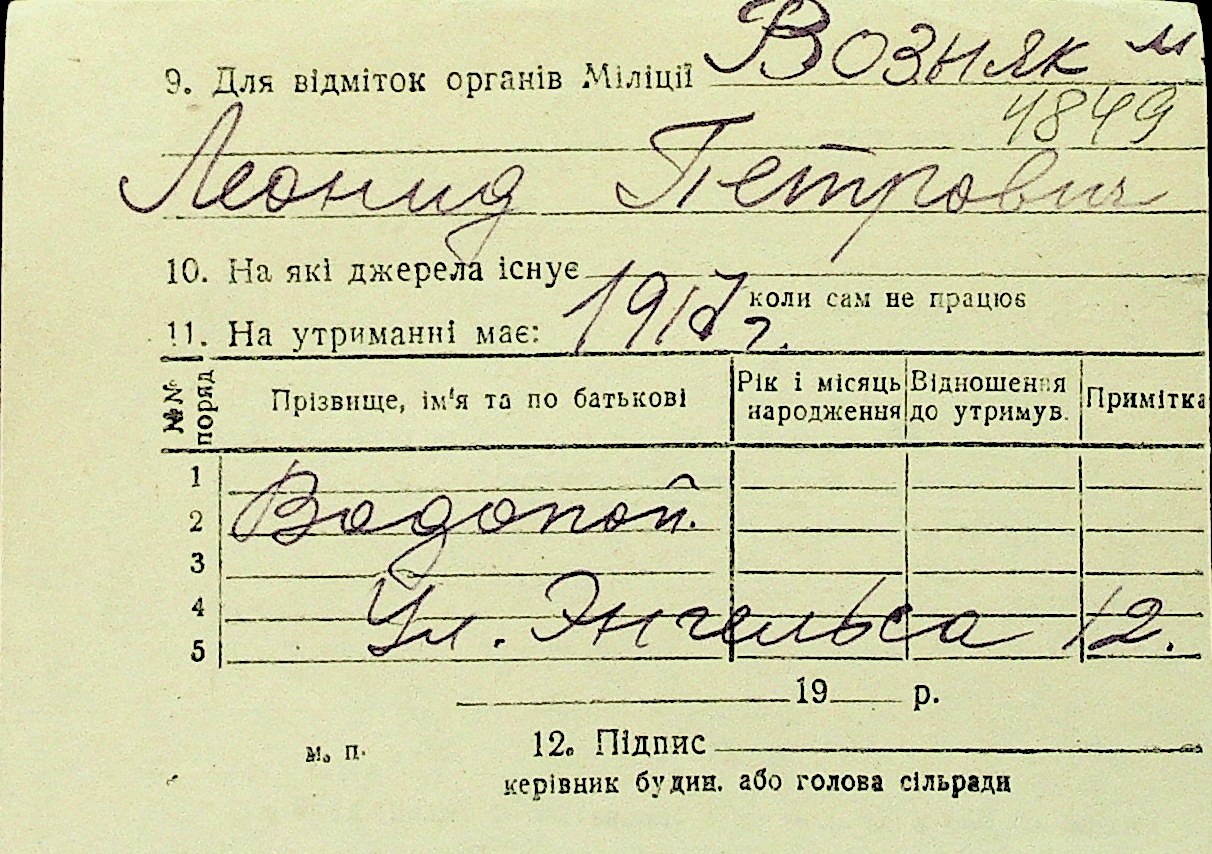 9. Для відміток органів Міліції Возняк м.
4849
Леонид Петрович
10. На які джерела існує
1917 г. коли сам не працює
11. На утриманні має:
№№ поряд Прізвище, ім'я та по батькові Рік і місяць народження Відношення до утримув. Примітка
1
2 Водопой.
3
4 Ул. Энгельса 12.
5
19 р.
м. п. 12. Підпис
керівник будин. або голова сільради